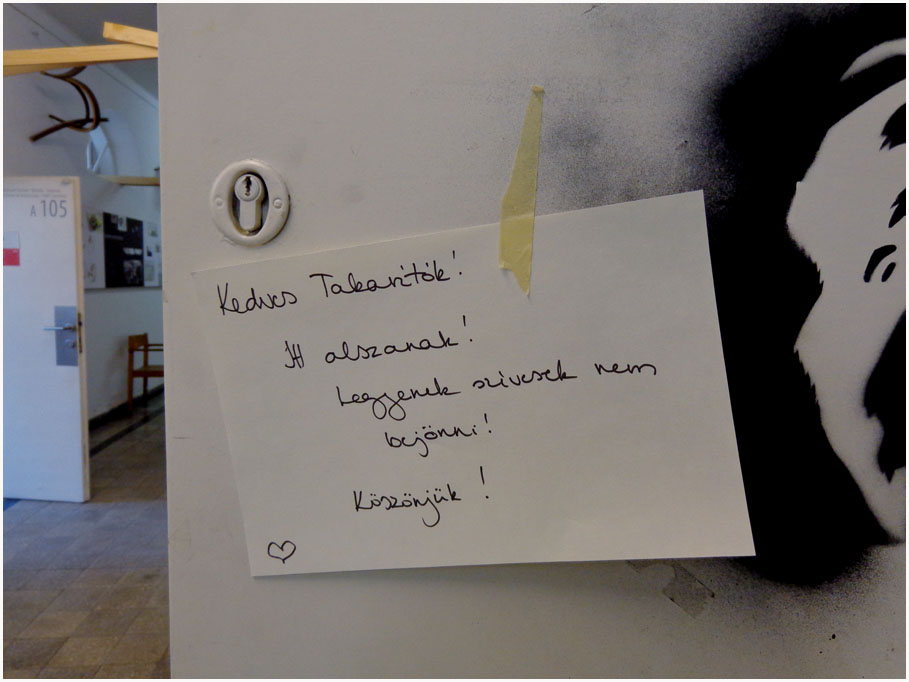 A 105
Kedves Takarítók!
Itt alszanak!
Legyenek szívesek nem
bejönni!
Köszönjük!